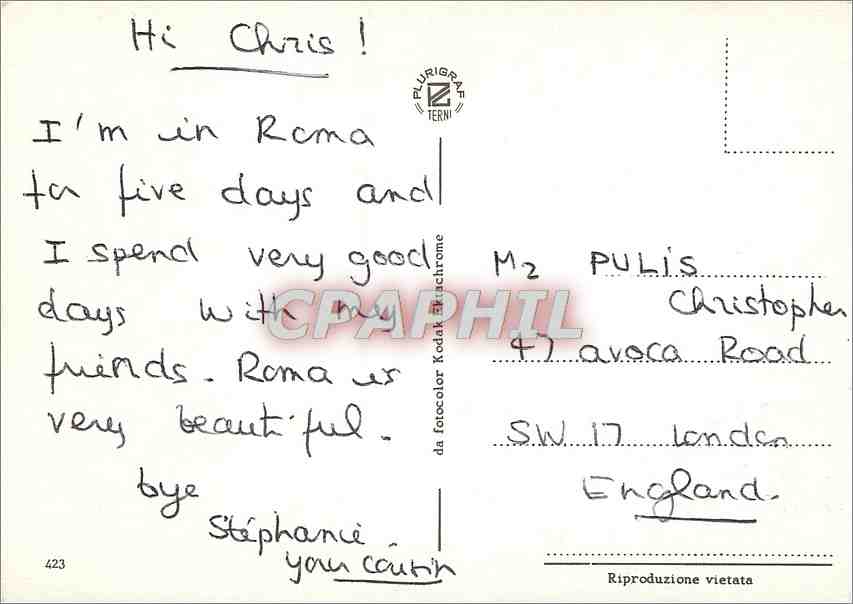 Hi Chris !
I'm in Roma
for five days and
I spend very good
days with my
friends. Roma is
very beautiful.
bye
Stéphanie.
your cousin
423
PLURIGRAF
TERNI
da fotocolor Kodak Ektachrome
CPAPHIL
Mr PULIS
Christopher
47 avoca Road
SW 17 London
England.
Riproduzione vietata